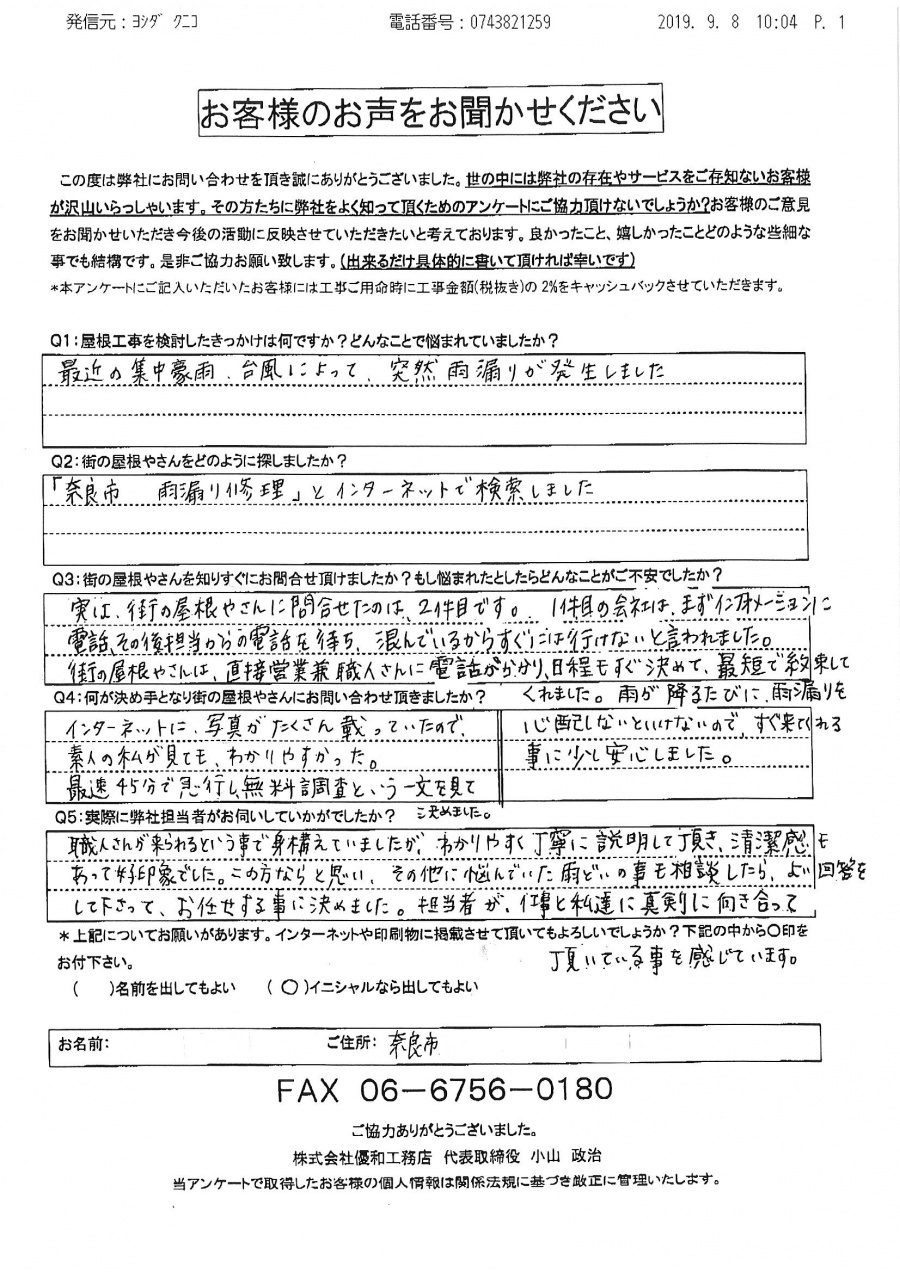 発信元：ﾖｼﾀﾞ ｸﾆｺ 電話番号：0743821259 2019. 9. 8 10:04 P. 1
お客様のお声をお聞かせください
この度は弊社にお問い合わせを頂き誠にありがとうございました。世の中には弊社の存在やサービスをご存知ないお客様
が沢山いらっしゃいます。その方たちに弊社をよく知って頂くためのアンケートにご協力頂けないでしょうか？お客様のご意見
をお聞かせいただき今後の活動に反映させていただきたいと考えております。良かったこと、嬉しかったことどのような些細な
事でも結構です。是非ご協力お願い致します。（出来るだけ具体的に書いて頂ければ幸いです）
*本アンケートにご記入いただいたお客様には工事ご用命時に工事金額(税抜き)の 2%をキャッシュバックさせていただきます。
Q1：屋根工事を検討したきっかけは何ですか？どんなことで悩まれていましたか？
最近の集中豪雨、台風によって、突然雨漏りが発生しました
Q2：街の屋根やさんをどのように探しましたか？
「奈良市 雨漏り修理」とインターネットで検索しました
Q3：街の屋根やさんを知りすぐにお問合せ頂けましたか？もし悩まれたとしたらどんなことがご不安でしたか？
実は、街の屋根やさんに問合せたのは、2件目です。 1件目の会社は、まずインフォメーションに
電話、その後担当からの電話を待ち、混んでいるからすぐには行けないと言われました。
街の屋根やさんは、直接営業兼職人さんに電話がかかり、日程もすぐ決めて、最短で約束して
くれました。雨が降るたびに、雨漏りを
心配しないといけないので、すぐ来てくれる
事に少し安心しました。
Q4：何が決め手となり街の屋根やさんにお問い合わせ頂きましたか？
インターネットに、写真がたくさん載っていたので、
素人の私が見ても、わかりやすかった。
最速45分で急行し無料調査という一文を見て
決めました。
Q5：実際に弊社担当者がお伺いしていかがでしたか？
職人さんが来られるという事で身構えていましたが、わかりやすく丁寧に説明して頂き、清潔感も
あって好印象でした。この方ならと思い、その他に悩んでいた雨どいの事も相談したら、よい回答を
して下さって、お任せする事に決めました。担当者が、仕事と私達に真剣に向き合って
頂いている事を感じています。
*上記についてお願いがあります。インターネットや印刷物に掲載させて頂いてもよろしいでしょうか？下記の中から〇印を
お付下さい。
（ ）名前を出してもよい （〇）イニシャルなら出してもよい
お名前： ご住所：奈良市
FAX 06－6756－0180
ご協力ありがとうございました。
株式会社優和工務店 代表取締役 小山 政治
当アンケートで取得したお客様の個人情報は関係法規に基づき厳正に管理いたします。